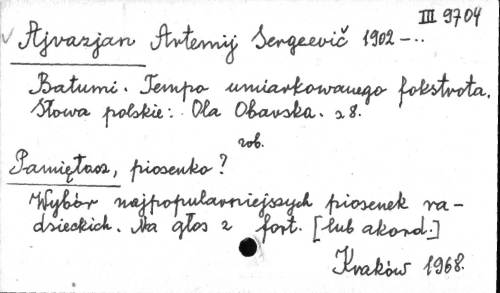 III 9704
Ajvazjan Artemij Sergeevič 1902 - ..
Batumi. Tempo umiarkowanego fokstrota.
Słowa polskie: Ola Obarska. s 8.
zob.
Pamiętasz, piosenko?
Wybór najpopularniejszych piosenek ra-
dzieckich. Na głos z fort. [lub akord.]
Kraków 1968.